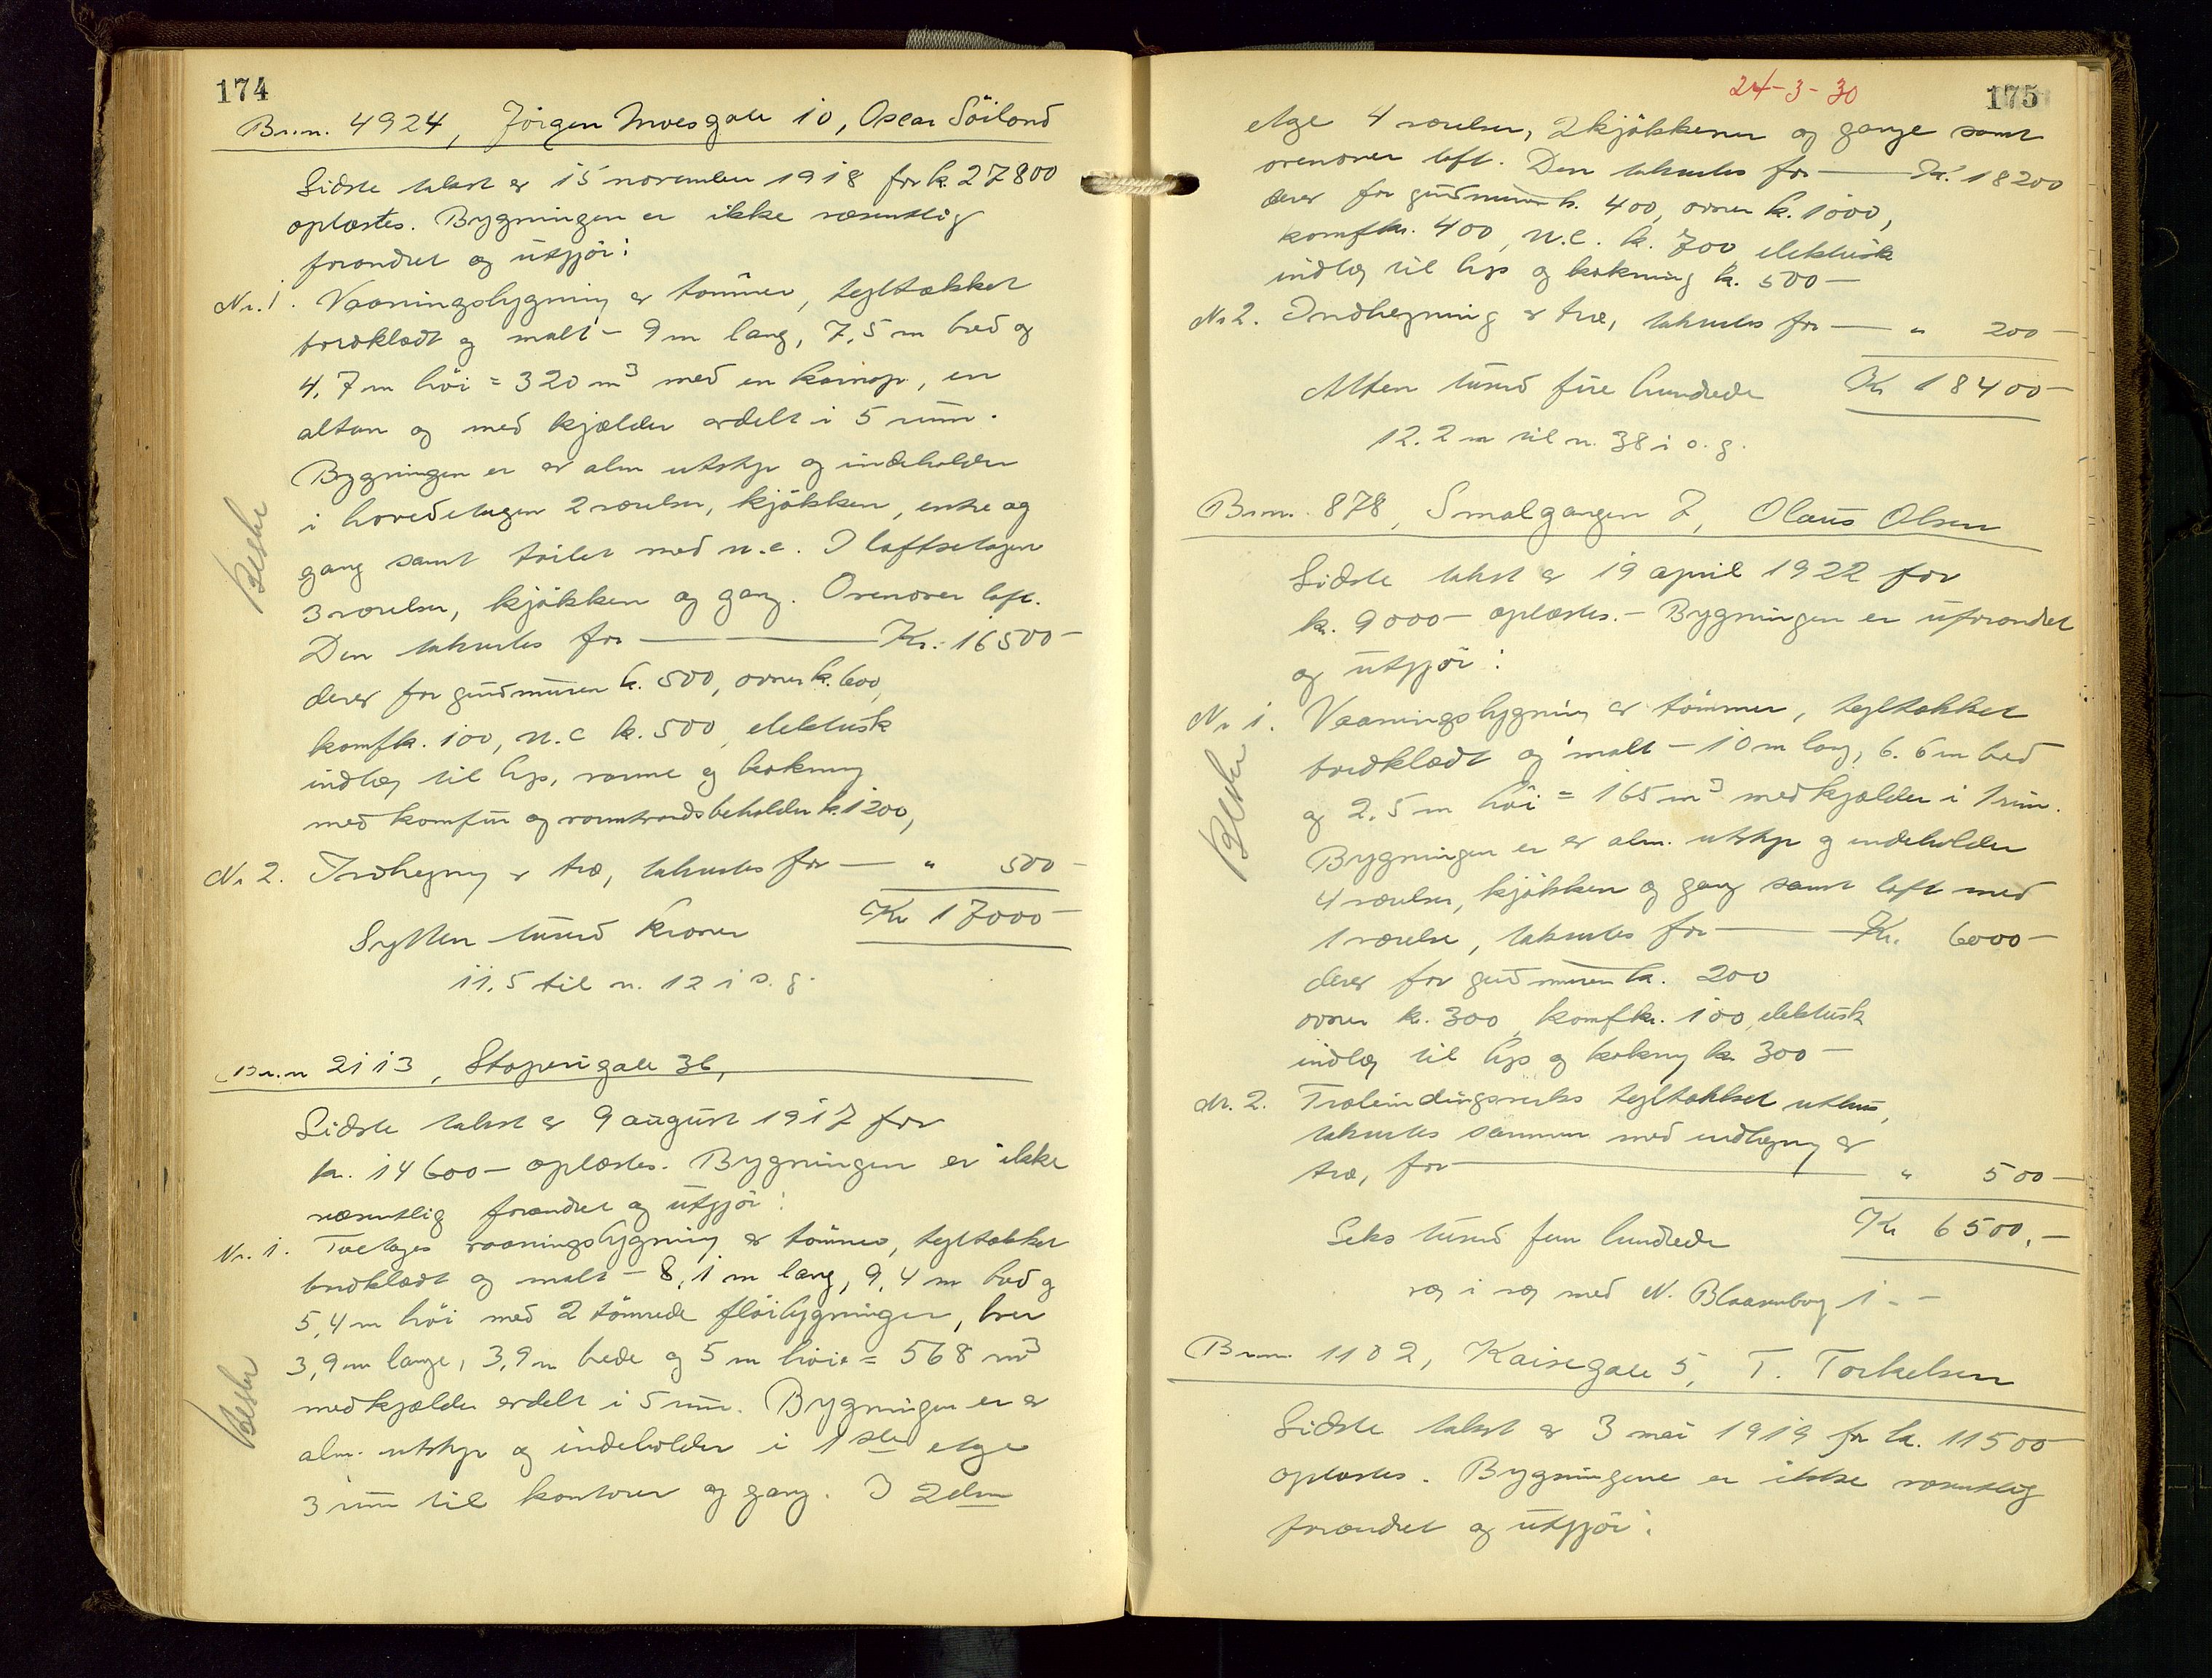 174
Br.n. 4924, Jörgen Moesgate 10, Oscar Söiland
Sidste takst av 15 november 1918 for kr. 27800
oplæstes. Bygningen er ikke væsentlig
forandret og utgjör:
Nr. 1. Vaaningsbygning av tömmer, tegltækket
bordklædt og malt - 9 m lang, 7,5 m bred og
4,7 m höi = 320 m³ med en karnap, en
altan og med kjælder avdelt i 5 rum.
Bygningen er av alm utstyr og indeholder
i hovedetagen 2 værelser, kjökken, entre og
gang samt toilet med w.c. I loftsetagen
3 værelser, kjökken og gang. Ovenover loft.
Den takseres for — Kr. 16500 -
derav for grundmuren kr. 500, ovner kr. 600,
komf kr. 100, w.c kr. 500, elektrisk
indlæg til lys, varme og kokning
med komfur og varmtvandsbeholder kr. 1200,
Nr 2. Indhegning av træ, takseres for — " 500 -
Sytten tusend kroner Kr 17000 -
11.5 til n. 12 i s. g.
Br.n 2113, Stoperigate 36,
Sidste takst av 9 august 1917 for
kr. 14600 - oplæstes. Bygningen er ikke
væsentlig forandret og utgjör:
Nr. 1. Toetages vaaningsbygning av tömmer, tegltækket
bordklædt og malt - 8,1 m lang, 9,4 m bred og
5,4 m höi med 2 tömrede flöibygninger, hver
3,9 m lange, 3,9 m brede og 5 m höie = 568 m³
med kjælder avdelt i 5 rum. Bygningen er av
alm. utstyr og indeholder i 1ste etage
3 rum til kontorer og gang. I 2den
24-3-30
175
etage 4 værelser, 2 kjökkener og gange samt
ovenover loft. Den takseres for — Kr. 18200
derav for grundmuren kr. 400, ovner kr. 1000,
komf kr. 400, w.c. kr. 700, elektrisk
indlæg til lys og kokning kr. 500 -
Nr 2. Indhegning av træ, takseres for — " 200 -
Atten tusend fire hundrede Kr 18400 -
12.2 m til n. 38 i o. g.
Br.nr. 878, Smalgangen 7, Olaus Olsen
Sidste takst av 19 april 1922 for
kr. 9000 - oplæstes. - Bygningen er uforandret
og utgjör:
Nr 1. Vaaningsbygning av tömmer, tegltækket
bordklædt og malt - 10 m lang, 6.6 m bred
og 2.5 m höi = 165 m³ med kjælder i 1 rum.
Bygningen er av alm. utstyr og indeholder
4 værelser, kjökken og gang samt loft med
1 værelse, takseres for — Kr. 6000 -
derav for grundmuren kr. 200
ovner kr. 300, komf kr. 100, elektrisk
indlæg til lys og kokning kr 300 -
Nr. 2. Træbindingsverks tegltækket uthus,
takseres sammen med indhegning av
træ, for — " 500 -
Seks tusend fem hundrede Kr 6500.-
væg i væg med N. Blaasenborg 1 - -
Br.nr. 1102, Kaisegate 5, T. Torkelsen
Sidste takst av 3 mai 1919 for kr. 11500
oplæstes. Bygningene er ikke væsentlig
forandret og utgjör: